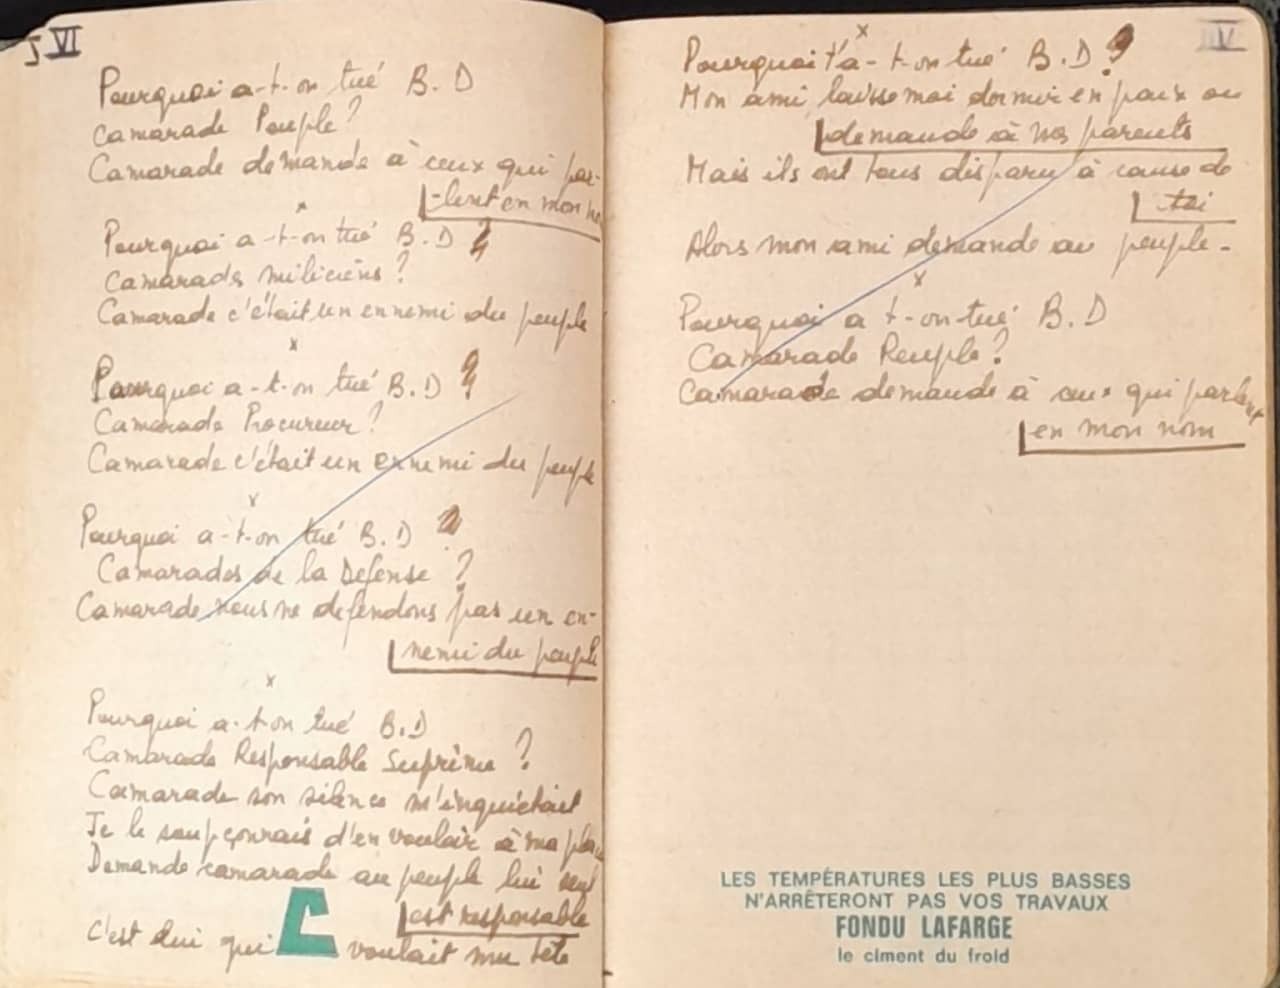 5 VI
Pourquoi a-t-on tué B. D
Camarade Peuple ?
Camarade demande à ceux qui par-
-lent en mon no
x
Pourquoi a-t-on tué B. D ?
Camarades miliciens ?
Camarade c'était un ennemi du peuple
x
Pourquoi a-t-on tué B. D ?
Camarade Procureur ?
Camarade c'était un ennemi du peuple
x
Pourquoi a-t-on tué B. D ?
Camarades de la Défense ?
Camarade nous ne défendons pas un en-
nemi du peuple
x
Pourquoi a-t-on tué B. D
Camarade Responsable Suprême ?
Camarade son silence m'inquiétait
Je le soupçonnais d'en vouloir à ma place
Demande camarade au peuple lui seul
est responsable
C'est lui qui voulait ma tête
IV
x
Pourquoi t'a-t-on tué B. D ?
Mon ami laisse moi dormir en paix ou
demande à nos parents
Mais ils ont tous disparu à cause de
toi
Alors mon ami demande au peuple -
x
Pourquoi a t-on-tué B. D
Camarade Peuple ?
Camarade demande à ceux qui parlent
en mon nom
LES TEMPÉRATURES LES PLUS BASSES
N'ARRÊTERONT PAS VOS TRAVAUX
FONDU LAFARGE
le ciment du froid